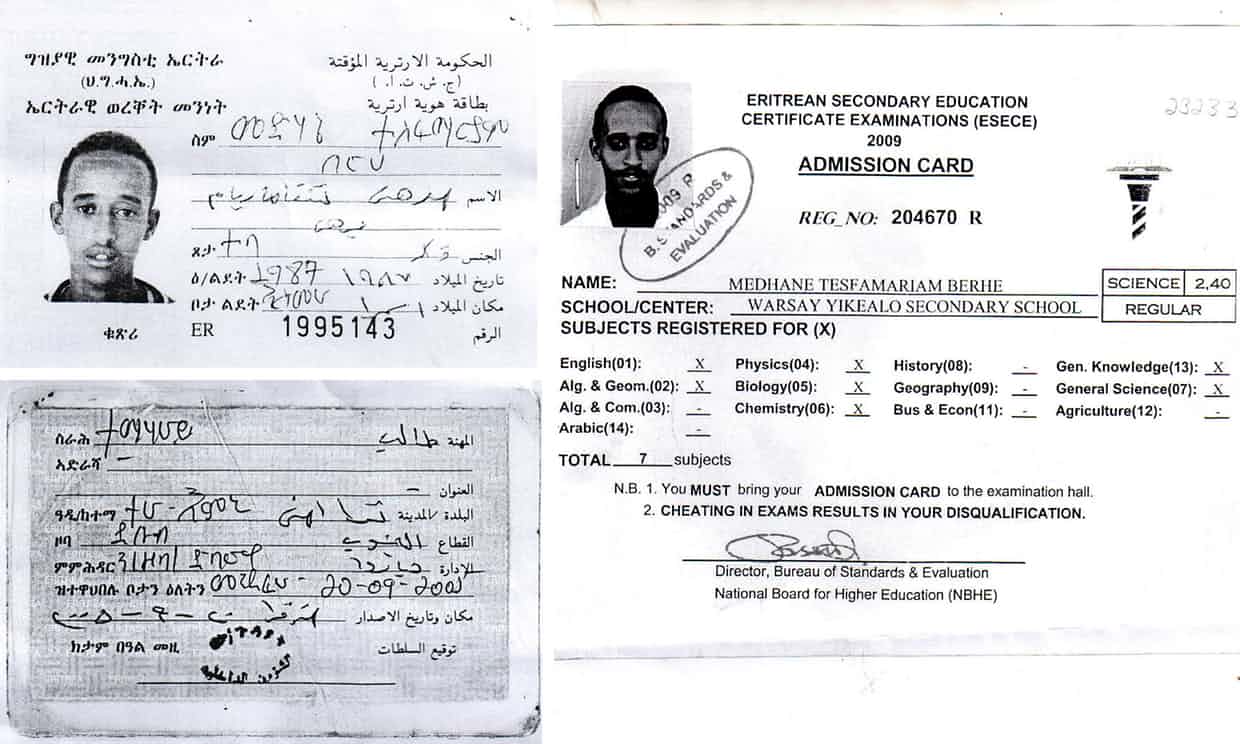 ግዝያዊ መንግስቲ ኤርትራ
(ህ.ግ.ሓ.ኤ.)
ኤርትራዊ ወረቐት መንነት
الحكومة الارترية المؤقتة
(ج . ش . ت . ا . )
بطاقة هوية ارترية
ስም
الاسم
ጾታ
الجنس
ዕ/ልደት 1987
تاريخ الميلاد ١٩٨٧
ቦታ ልደት
مكان الميلاد
ቁጽሪ ER 1995143 الرقم
ስራሕ ተማሃራይ
المهنة طالب
ኣድራሻ -
العنوان -
ዓዲ/ከተማ
البلدة /المدينة
ዞባ ደቡብ
القطاع الجنوب
ምምሕዳር
الإدارة
ዝተዋህበሉ ቦታን ዕለትን 20-09-2001
مكان وتاريخ الاصدار
ክታም በዓል መዚ
توقيع السلطات
ERITREAN SECONDARY EDUCATION
CERTIFICATE EXAMINATIONS (ESECE)
2009
ADMISSION CARD
23233
REG_NO: 204670 R
B. STANDARDS &
EVALUATION
NAME: MEDHANE TESFAMARIAM BERHE
SCIENCE 2,40
SCHOOL/CENTER: WARSAY YIKEALO SECONDARY SCHOOL
REGULAR
SUBJECTS REGISTERED FOR (X)
English(01): X Physics(04): X History(08): - Gen. Knowledge(13): X
Alg. & Geom.(02): X Biology(05): X Geography(09): - General Science(07): X
Alg. & Com.(03): - Chemistry(06): X Bus & Econ(11): - Agriculture(12): -
Arabic(14): -
TOTAL 7 subjects
N.B. 1. You MUST bring your ADMISSION CARD to the examination hall.
2. CHEATING IN EXAMS RESULTS IN YOUR DISQUALIFICATION.
Director, Bureau of Standards & Evaluation
National Board for Higher Education (NBHE)